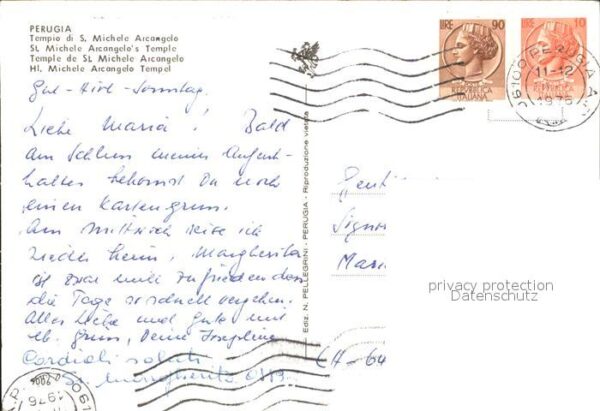 PERUGIA
Tempio di S. Michele Arcangelo
St. Michele Arcangelo's Temple
Temple de St. Michele Arcangelo
Hl. Michele Arcangelo Tempel
LIRE 90
LIRE 10
REPUBBLICA ITALIANA
06100 PERUGIA A.
11-12
1976
Sonntag,
Liebe Maria! Bald
am Schluss meines
bekommst Du noch
einen Kartengruss.
Am Mittwoch reise ich
wieder heim. Margherita
ist zufrieden dass
die Tage so schnell vergehen.
Alles Liebe und Gute mit
lb. Gruss, Deine Josephine
Cordiali saluti
Sr. Margherita
Ediz. N. PELLEGRINI - PERUGIA - Riproduzione vietata
Gent
Signor
Mari
CH-64
privacy protection
Datenschutz
1976